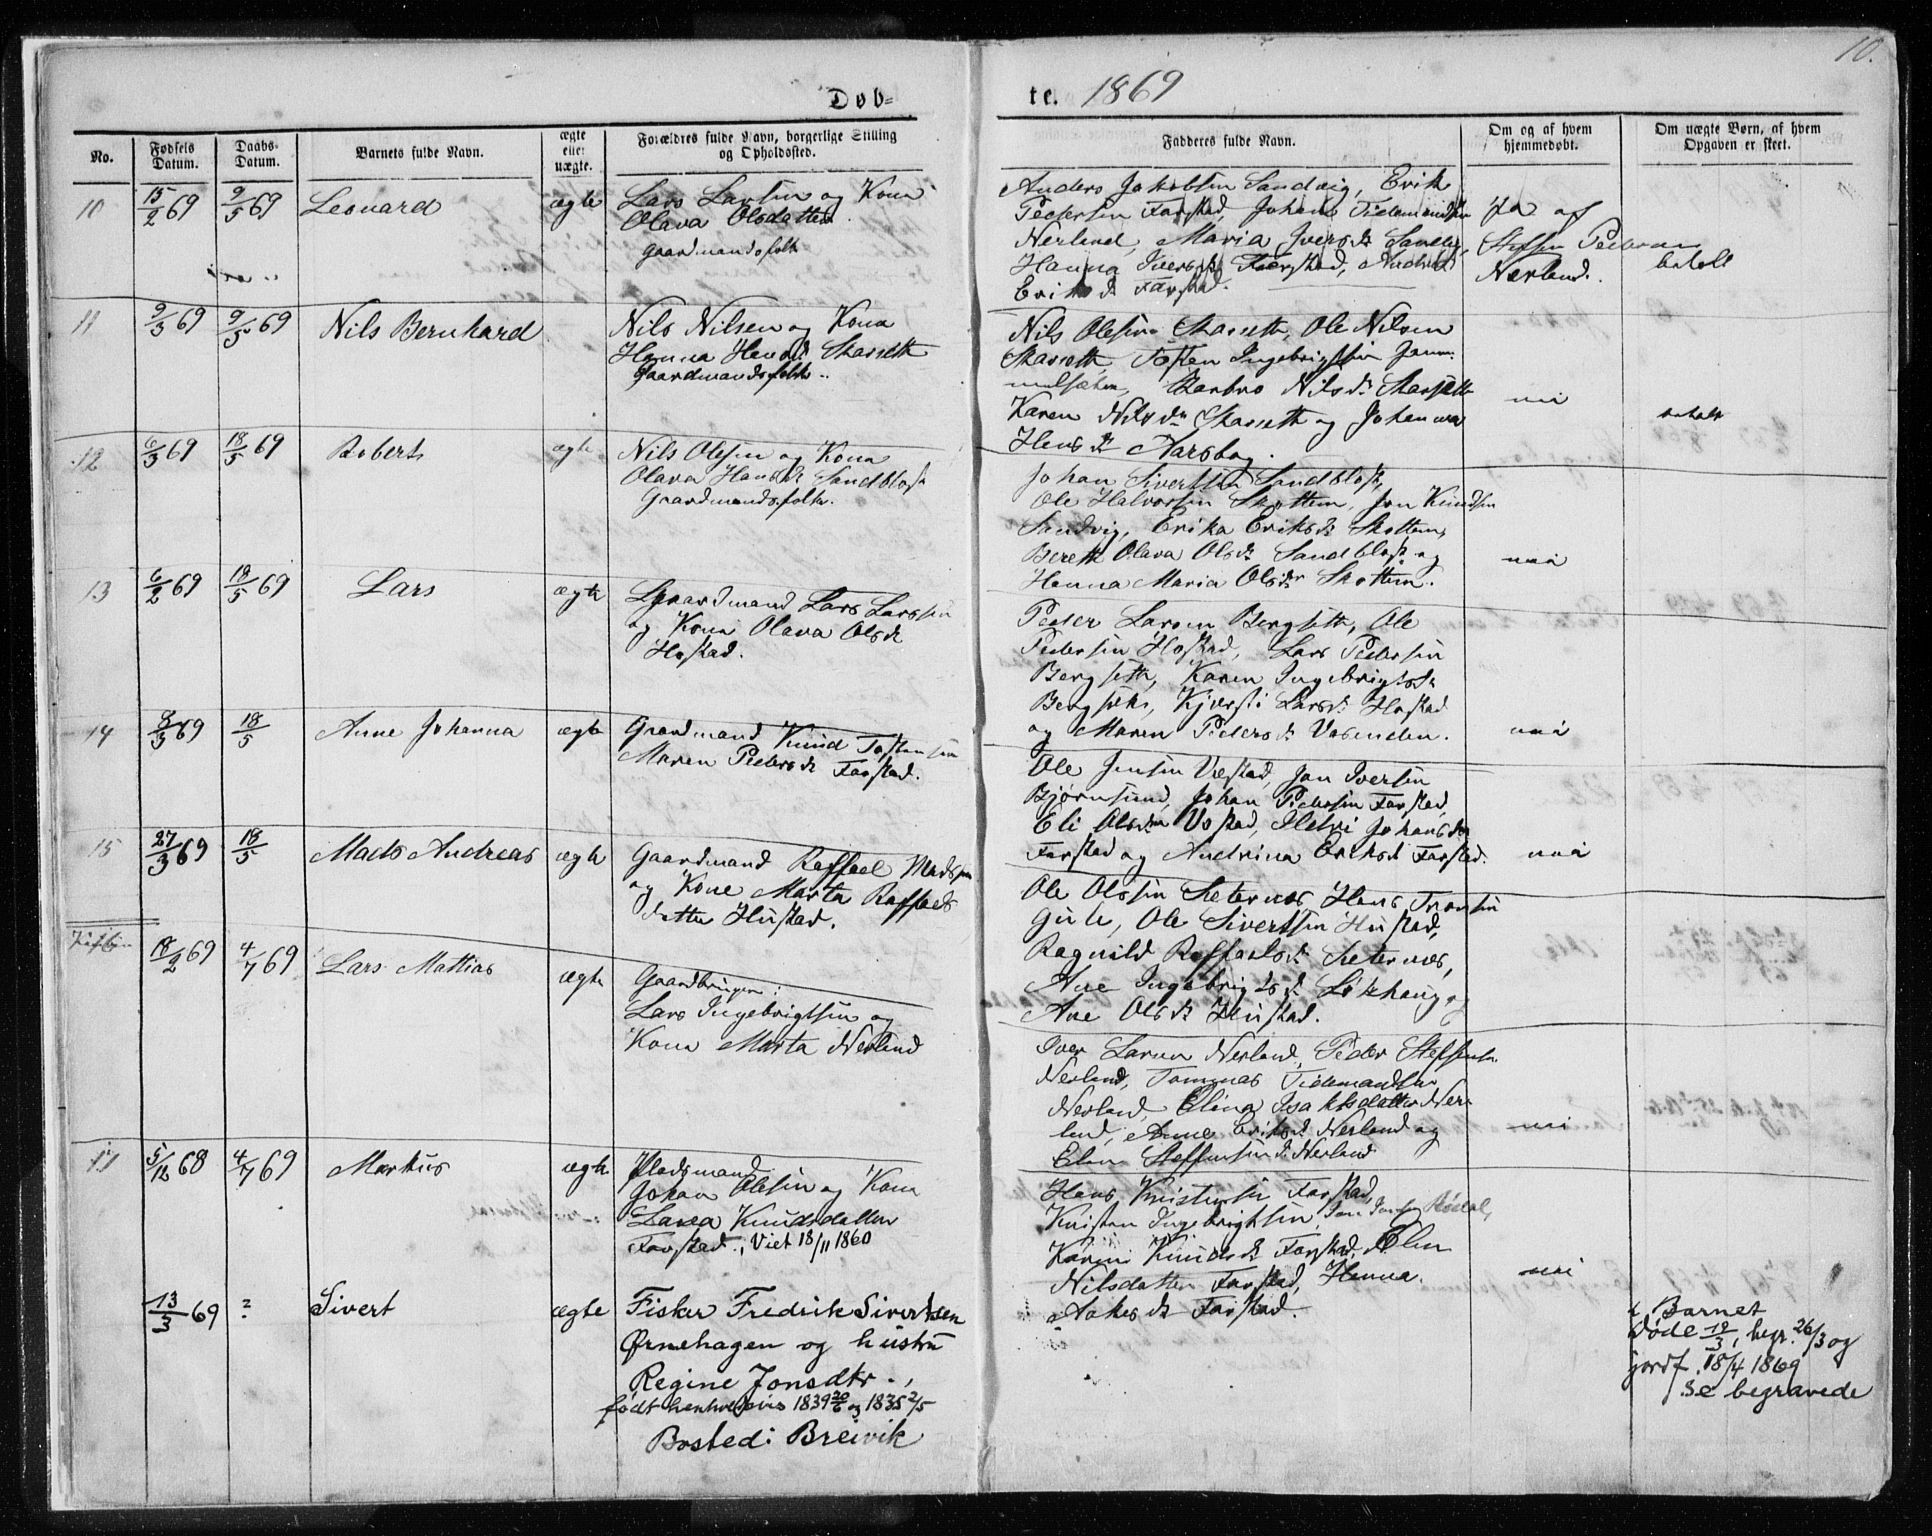 10.
Døb=
te. 1869
No.
Fødsels Datum.
Daabs-Datum.
Barnets fulde Navn.
ægte eller uægte.
Forældres fulde Navn, borgerlige Stilling og Opholdssted.
Fadderes fulde Navn.
Om og af hvem hjemmedøbt.
Om uægte Børn, af hvem Opgaven er skeet.
10
15/2 69
9/5 69
Leonard
ægte
Lars Larsen og Kona
Olava Olsdatter
Gaardmandsfolk
Anders Jakobsen Sandvig, Erik
Pedersen Farstad, Johans Tidemandsen
Nerland, Maria Iversdr
Hanna Iversdr Farstad,
Eriksdr Farstad.
Ja af
Steffen Pedersen
Nerland.
betalt
11
9/3 69
9/5 69
Nils Bernhard
Nils Nilsen og Kona
Hanna Hansdr Skarseth
Gaardmandsfolk
Nils Olesen Skarseth, Ole Nilsen
Skarseth Tosten Ingebrigtsen
Barbro Nilsdr Skarseth
Karen Nilsdr Skarseth og Johanna
Hansdr Aarsbog.
nei
betalt
12
6/3 69
18/5 69
Robert
ægte
Nils Olesen og Kona
Olava Hansdr Sandblost
Gaardmandsfolk.
Johan Sivertsen Sandblost,
Ole Halvorsen Skottem, Jon Knudsen
Sandvig, Erika Eriksdr Skottem,
Bereth Olava Olsdr Sandblost og
Hanna Maria Olsdr Skottem.
nei
13
6/2 69
18/5 69
Lars
ægte
Gaardmand Lars Larssen
og Kona Olava Olsdr
Hostad.
Peder Larsen Bergseth, Ole
Pedersen Hostad, Lars Pedersen
Bergseth, Karen Ingebrigtsdr
Bergseth, Kjersti Larsdr Hostad
og Maren Pedersdr Vasenden.
nei
14
8/3 69
18/5
Anne Johanna
ægte
Gaardmand Knud Tostensen
Maren Pedersdr Farstad.
Ole Jensen Vestad, Jon Iversen
Bjørnsund, Johan Pedersen Farstad,
Eli Olsdr Vestad, Johansdr
Farstad og Andrina Eriksdr Farstad.
nei
15
27/3 69
18/5
Mads Andreas
ægte
Gaardmand Raffael Madssen
og Kone Marta Raffaels
datter Hustad.
Ole Olssen Seternes Hans Tronsen
Gule, Ole Sivertsen Hustad,
Ragnild Raffaelsdr Seternes,
Ane Ingebrigtsdr Løkhaug og
Ane Olsdr Hustad.
18/2 69
4/7 69
Lars Mattias
ægte
Gaardbruger:
Lars Ingebrigtsen og
Kona Marta Nerland
Iver Larsen Nerland, Peder Steffensen
Nerland, Tommas Tidemandsen
Nerland, Elina Isaksdatter Ner-
land, Anne Eriksdr Nerland og
Elen Steffensdr Nerland
nei
17
5/12 68
4/7 69
Markus
ægte
Pladsmand
Johan Olesen og Kona
Knudsdatter
Farstad., Viet 18/11 1860
Hans Kristensen Farstad,
Kristen Ingebrigtsen, Jon
Karen Knudsdr Farstad, Elen
Nilsdatter Farstad, Hanna
Aakesdr Farstad.
nei
13/3 69
?
Sivert
ægte
Fisker Fredrik Sivertsen
Ørnehagen og hustru
Regine Jonsdtr.,
født henholdsvis 1839 20/6 og 1835 2/5
Bosted: Breivik
Barnet
døde 19/3, begr. 26/3 og
jordf. 18/4 1869
se begravede